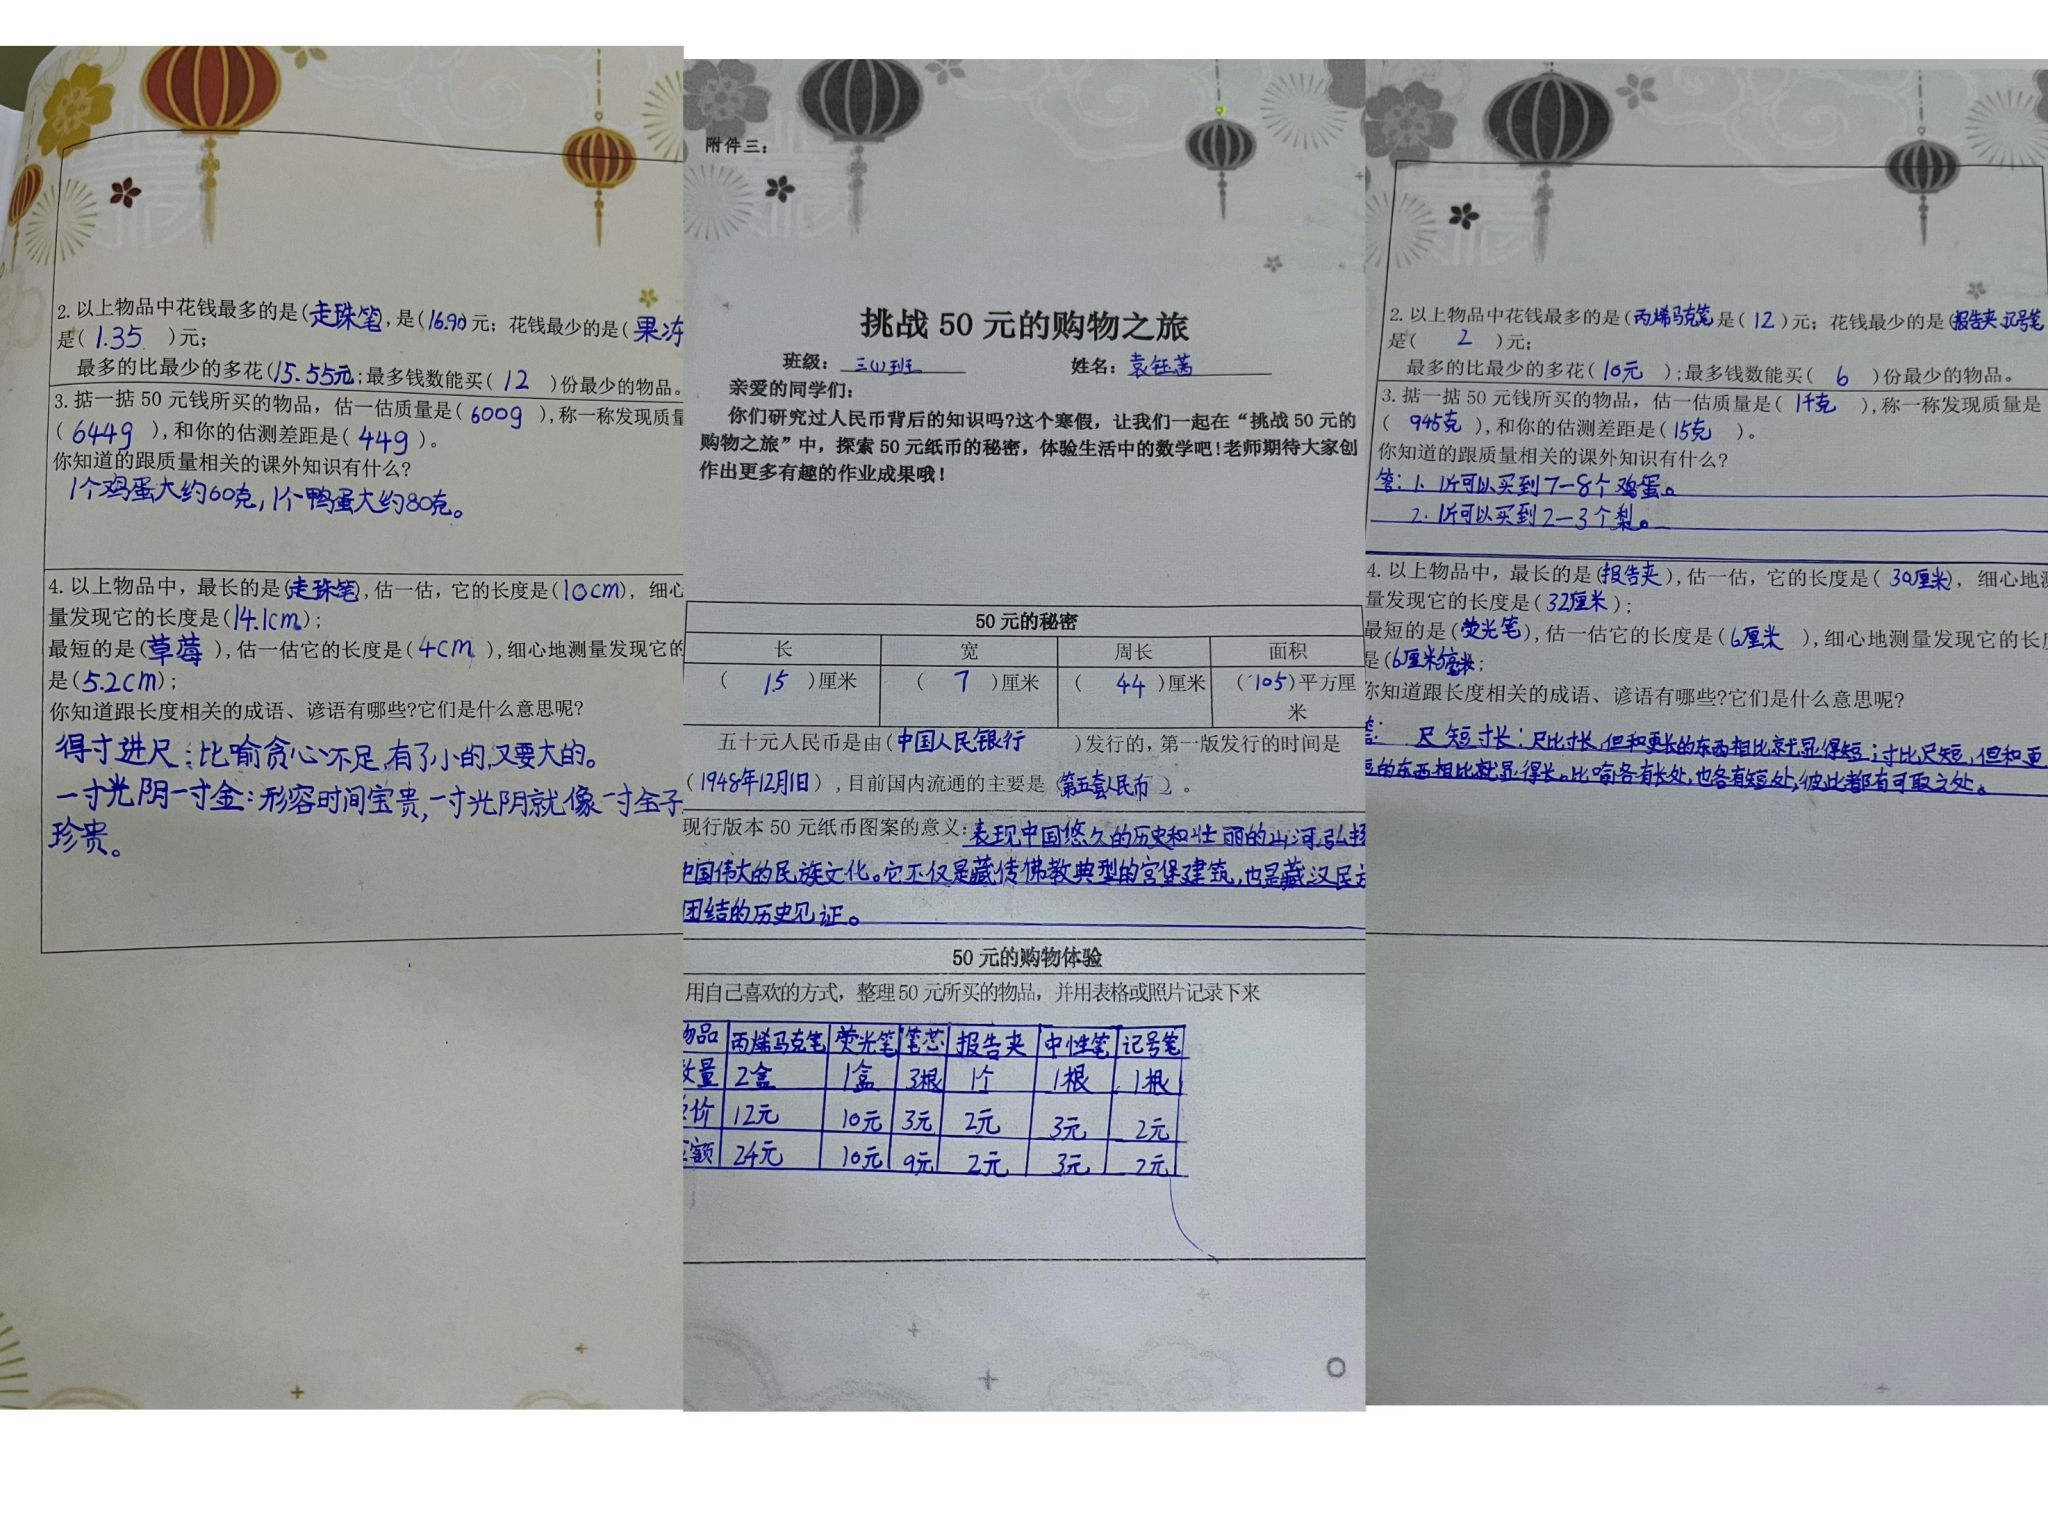 2.以上物品中花钱最多的是(走珠笔),是(16.90)元;花钱最少的是(果冻
是(1.35)元;
最多的比最少的多花(15.55元;最多钱数能买(12)份最少的物品。
3.掂一掂50元钱所买的物品，估一估质量是(600g),称一称发现质量
(644g),和你的估测差距是(44g)。
你知道的跟质量相关的课外知识有什么?
1个鸡蛋大约60克,1个鸭蛋大约80克。
4.以上物品中，最长的是(走珠笔),估一估，它的长度是(10cm)，细心
量发现它的长度是(14.1cm);
最短的是(草莓),估一估它的长度是(4cm),细心地测量发现它的
是(5.2cm);
你知道跟长度相关的成语、谚语有哪些?它们是什么意思呢?
得寸进尺:比喻贪心不足,有了小的,又要大的。
一寸光阴一寸金:形容时间宝贵,一寸光阴就像一寸金子
珍贵。
附件三：
挑战50元的购物之旅
班级：三(1)班 姓名：袁钰茜
亲爱的同学们：
你们研究过人民币背后的知识吗?这个寒假，让我们一起在“挑战50元的
购物之旅”中，探索50元纸币的秘密，体验生活中的数学吧!老师期待大家创
作出更多有趣的作业成果哦!
50元的秘密
长 宽 周长 面积
(15)厘米 (7)厘米 (44)厘米 (105)平方厘
米
五十元人民币是由(中国人民银行)发行的，第一版发行的时间是
(1948年12月1日),目前国内流通的主要是(第五套人民币)。
现行版本50元纸币图案的意义:表现中国悠久的历史和壮丽的山河,弘扬
中国伟大的民族文化。它不仅是藏传佛教典型的宫堡建筑,也是藏汉民族
团结的历史见证。
50元的购物体验
用自己喜欢的方式，整理50元所买的物品，并用表格或照片记录下来
物品 丙烯马克笔 荧光笔 笔芯 报告夹 中性笔 记号笔
数量 2盒 1盒 3根 1个 1根 1根
价 12元 10元 3元 2元 3元 2元
额 24元 10元 9元 2元 3元 2元
2.以上物品中花钱最多的是(丙烯马克笔是(12)元；花钱最少的是(报告夹、记号笔
是(2)元;
最多的比最少的多花(10元);最多钱数能买(6)份最少的物品。
3.掂一掂50元钱所买的物品，估一估质量是(1千克),称一称发现质量是
(945克),和你的估测差距是(15克)。
你知道的跟质量相关的课外知识有什么?
答:1.1斤可以买到7-8个鸡蛋。
2.1斤可以买到2-3个梨。
4.以上物品中，最长的是(报告夹),估一估，它的长度是(30厘米)，细心地测
量发现它的长度是(32厘米);
最短的是(荧光笔),估一估它的长度是(6厘米),细心地测量发现它的长度
是(6厘米毫米;
你知道跟长度相关的成语、谚语有哪些?它们是什么意思呢?
答: 尺短寸长:尺比寸长,但和更长的东西相比就显得短;寸比尺短,但和更
短的东西相比就显得长。比喻各有长处,也各有短处,彼此都有可取之处。